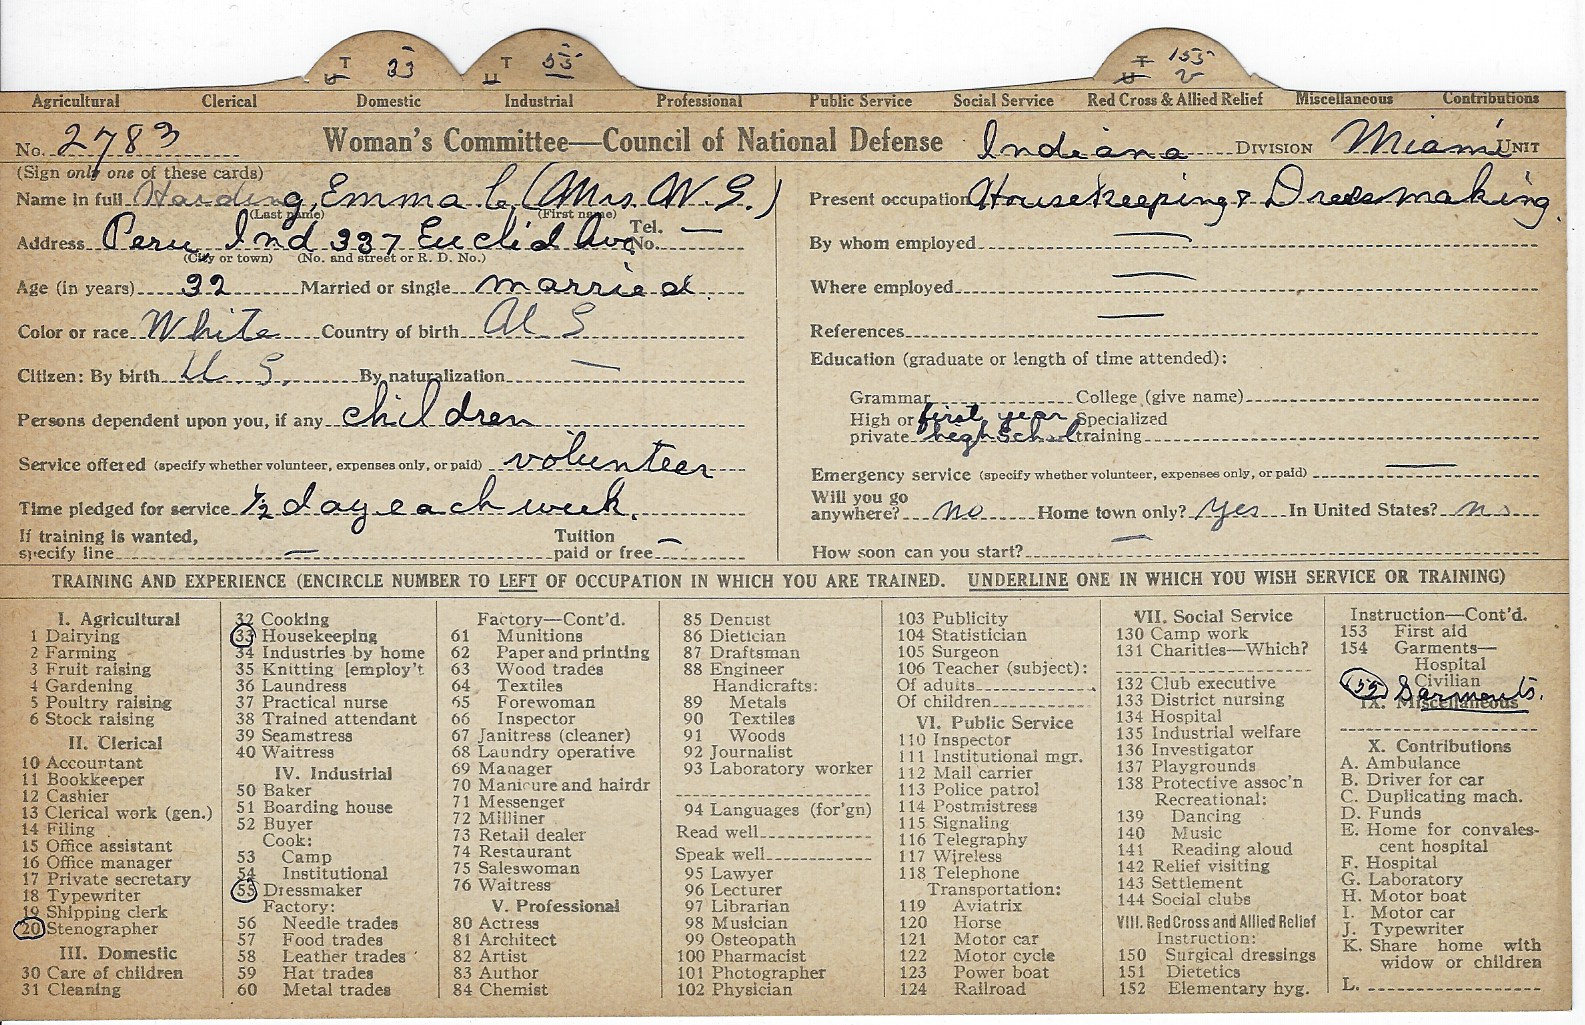 T 33 T 55 T 155
U U U v
Agricultural Clerical Domestic Industrial Professional Public Service Social Service Red Cross & Allied Relief Miscellaneous Contributions
No. 2783 Woman's Committee—Council of National Defense Indiana DIVISION Miami UNIT
(Sign only one of these cards)
Name in full Harding, Emma C. (Mrs. W. G.)
(Last name) (First name)
Address Peru Ind 337 Euclid Ave Tel. No. —
(City or town) (No. and street or R. D. No.)
Age (in years) 32 Married or single married
Color or race White Country of birth U S
Citizen: By birth U. S. By naturalization —
Persons dependent upon you, if any children
Service offered (specify whether volunteer, expenses only, or paid) volunteer
Time pledged for service 1/2 day each week.
If training is wanted, specify line — Tuition paid or free —
Present occupation Housekeeping & Dressmaking.
By whom employed —
Where employed —
References —
Education (graduate or length of time attended):
Grammar College (give name)
High or private first year high school Specialized training
Emergency service (specify whether volunteer, expenses only, or paid) —
Will you go anywhere? no Home town only? Yes In United States? no
How soon can you start? —
TRAINING AND EXPERIENCE (ENCIRCLE NUMBER TO LEFT OF OCCUPATION IN WHICH YOU ARE TRAINED. UNDERLINE ONE IN WHICH YOU WISH SERVICE OR TRAINING)
I. Agricultural
1 Dairying
2 Farming
3 Fruit raising
4 Gardening
5 Poultry raising
6 Stock raising
II. Clerical
10 Accountant
11 Bookkeeper
12 Cashier
13 Clerical work (gen.)
14 Filing
15 Office assistant
16 Office manager
17 Private secretary
18 Typewriter
19 Shipping clerk
20 Stenographer
III. Domestic
30 Care of children
31 Cleaning
32 Cooking
33 Housekeeping
34 Industries by home
35 Knitting [employ't
36 Laundress
37 Practical nurse
38 Trained attendant
39 Seamstress
40 Waitress
IV. Industrial
50 Baker
51 Boarding house
52 Buyer
Cook:
53 Camp
54 Institutional
55 Dressmaker
Factory:
56 Needle trades
57 Food trades
58 Leather trades
59 Hat trades
60 Metal trades
Factory—Cont'd.
61 Munitions
62 Paper and printing
63 Wood trades
64 Textiles
65 Forewoman
66 Inspector
67 Janitress (cleaner)
68 Laundry operative
69 Manager
70 Manicure and hairdr
71 Messenger
72 Milliner
73 Retail dealer
74 Restaurant
75 Saleswoman
76 Waitress
V. Professional
80 Actress
81 Architect
82 Artist
83 Author
84 Chemist
85 Dentist
86 Dietician
87 Draftsman
88 Engineer
Handicrafts:
89 Metals
90 Textiles
91 Woods
92 Journalist
93 Laboratory worker
94 Languages (for'gn)
Read well
Speak well
95 Lawyer
96 Lecturer
97 Librarian
98 Musician
99 Osteopath
100 Pharmacist
101 Photographer
102 Physician
103 Publicity
104 Statistician
105 Surgeon
106 Teacher (subject):
Of adults
Of children
VI. Public Service
110 Inspector
111 Institutional mgr.
112 Mail carrier
113 Police patrol
114 Postmistress
115 Signaling
116 Telegraphy
117 Wireless
118 Telephone
Transportation:
119 Aviatrix
120 Horse
121 Motor car
122 Motor cycle
123 Power boat
124 Railroad
VII. Social Service
130 Camp work
131 Charities—Which?
132 Club executive
133 District nursing
134 Hospital
135 Industrial welfare
136 Investigator
137 Playgrounds
138 Protective assoc'n
Recreational:
139 Dancing
140 Music
141 Reading aloud
142 Relief visiting
143 Settlement
144 Social clubs
VIII. Red Cross and Allied Relief
Instruction:
150 Surgical dressings
151 Dietetics
152 Elementary hyg.
Instruction—Cont'd.
153 First aid
154 Garments—
Hospital
Civilian
155 Garments.
IX. Miscellaneous
X. Contributions
A. Ambulance
B. Driver for car
C. Duplicating mach.
D. Funds
E. Home for convales-
cent hospital
F. Hospital
G. Laboratory
H. Motor boat
I. Motor car
J. Typewriter
K. Share home with
widow or children
L.